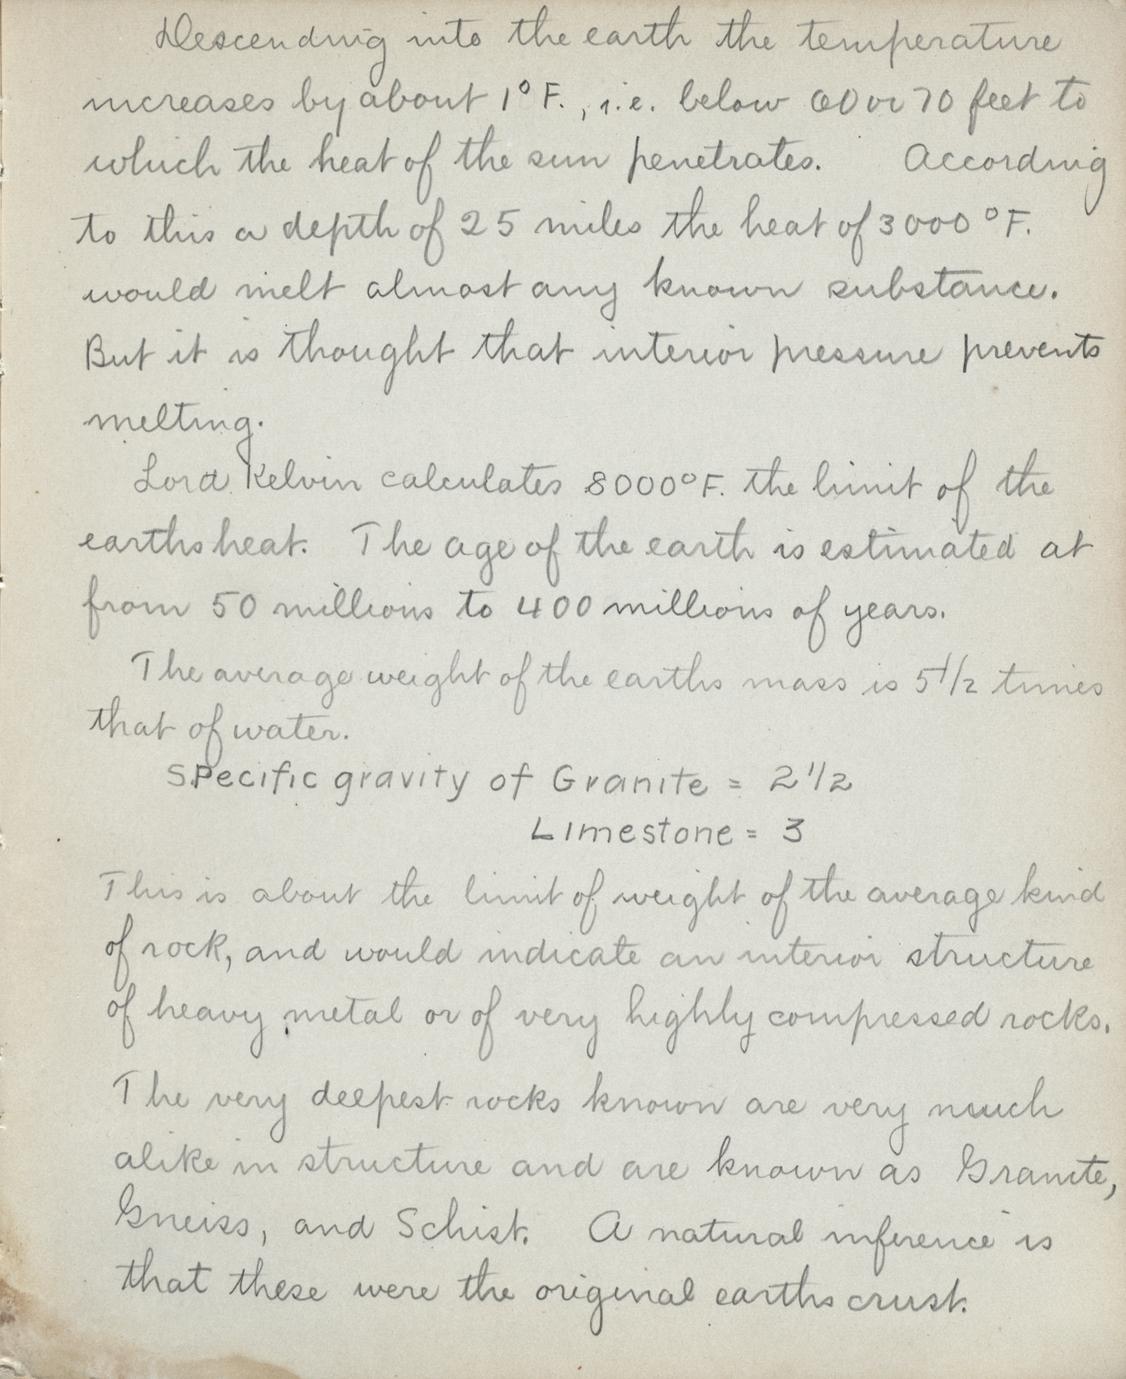 Descending into the earth the temperature
increases by about 1° F., i.e. below 60 or 70 feet to
which the heat of the sun penetrates. According
to this a depth of 25 miles the heat of 3000 °F.
would melt almost any known substance.
But it is thought that interior pressure prevents
melting.
Lord Kelvin calculates 8000°F. the limit of the
earths heat. The age of the earth is estimated at
from 50 millions to 400 millions of years.
The average weight of the earths mass is 5 1/2 times
that of water.
Specific gravity of Granite = 2 1/2
Limestone = 3
This is about the limit of weight of the average kind
of rock, and would indicate an interior structure
of heavy metal or of very highly compressed rocks.
The very deepest rocks known are very much
alike in structure and are known as Granite,
Gneiss, and Schist. A natural inference is
that these were the original earths crust.